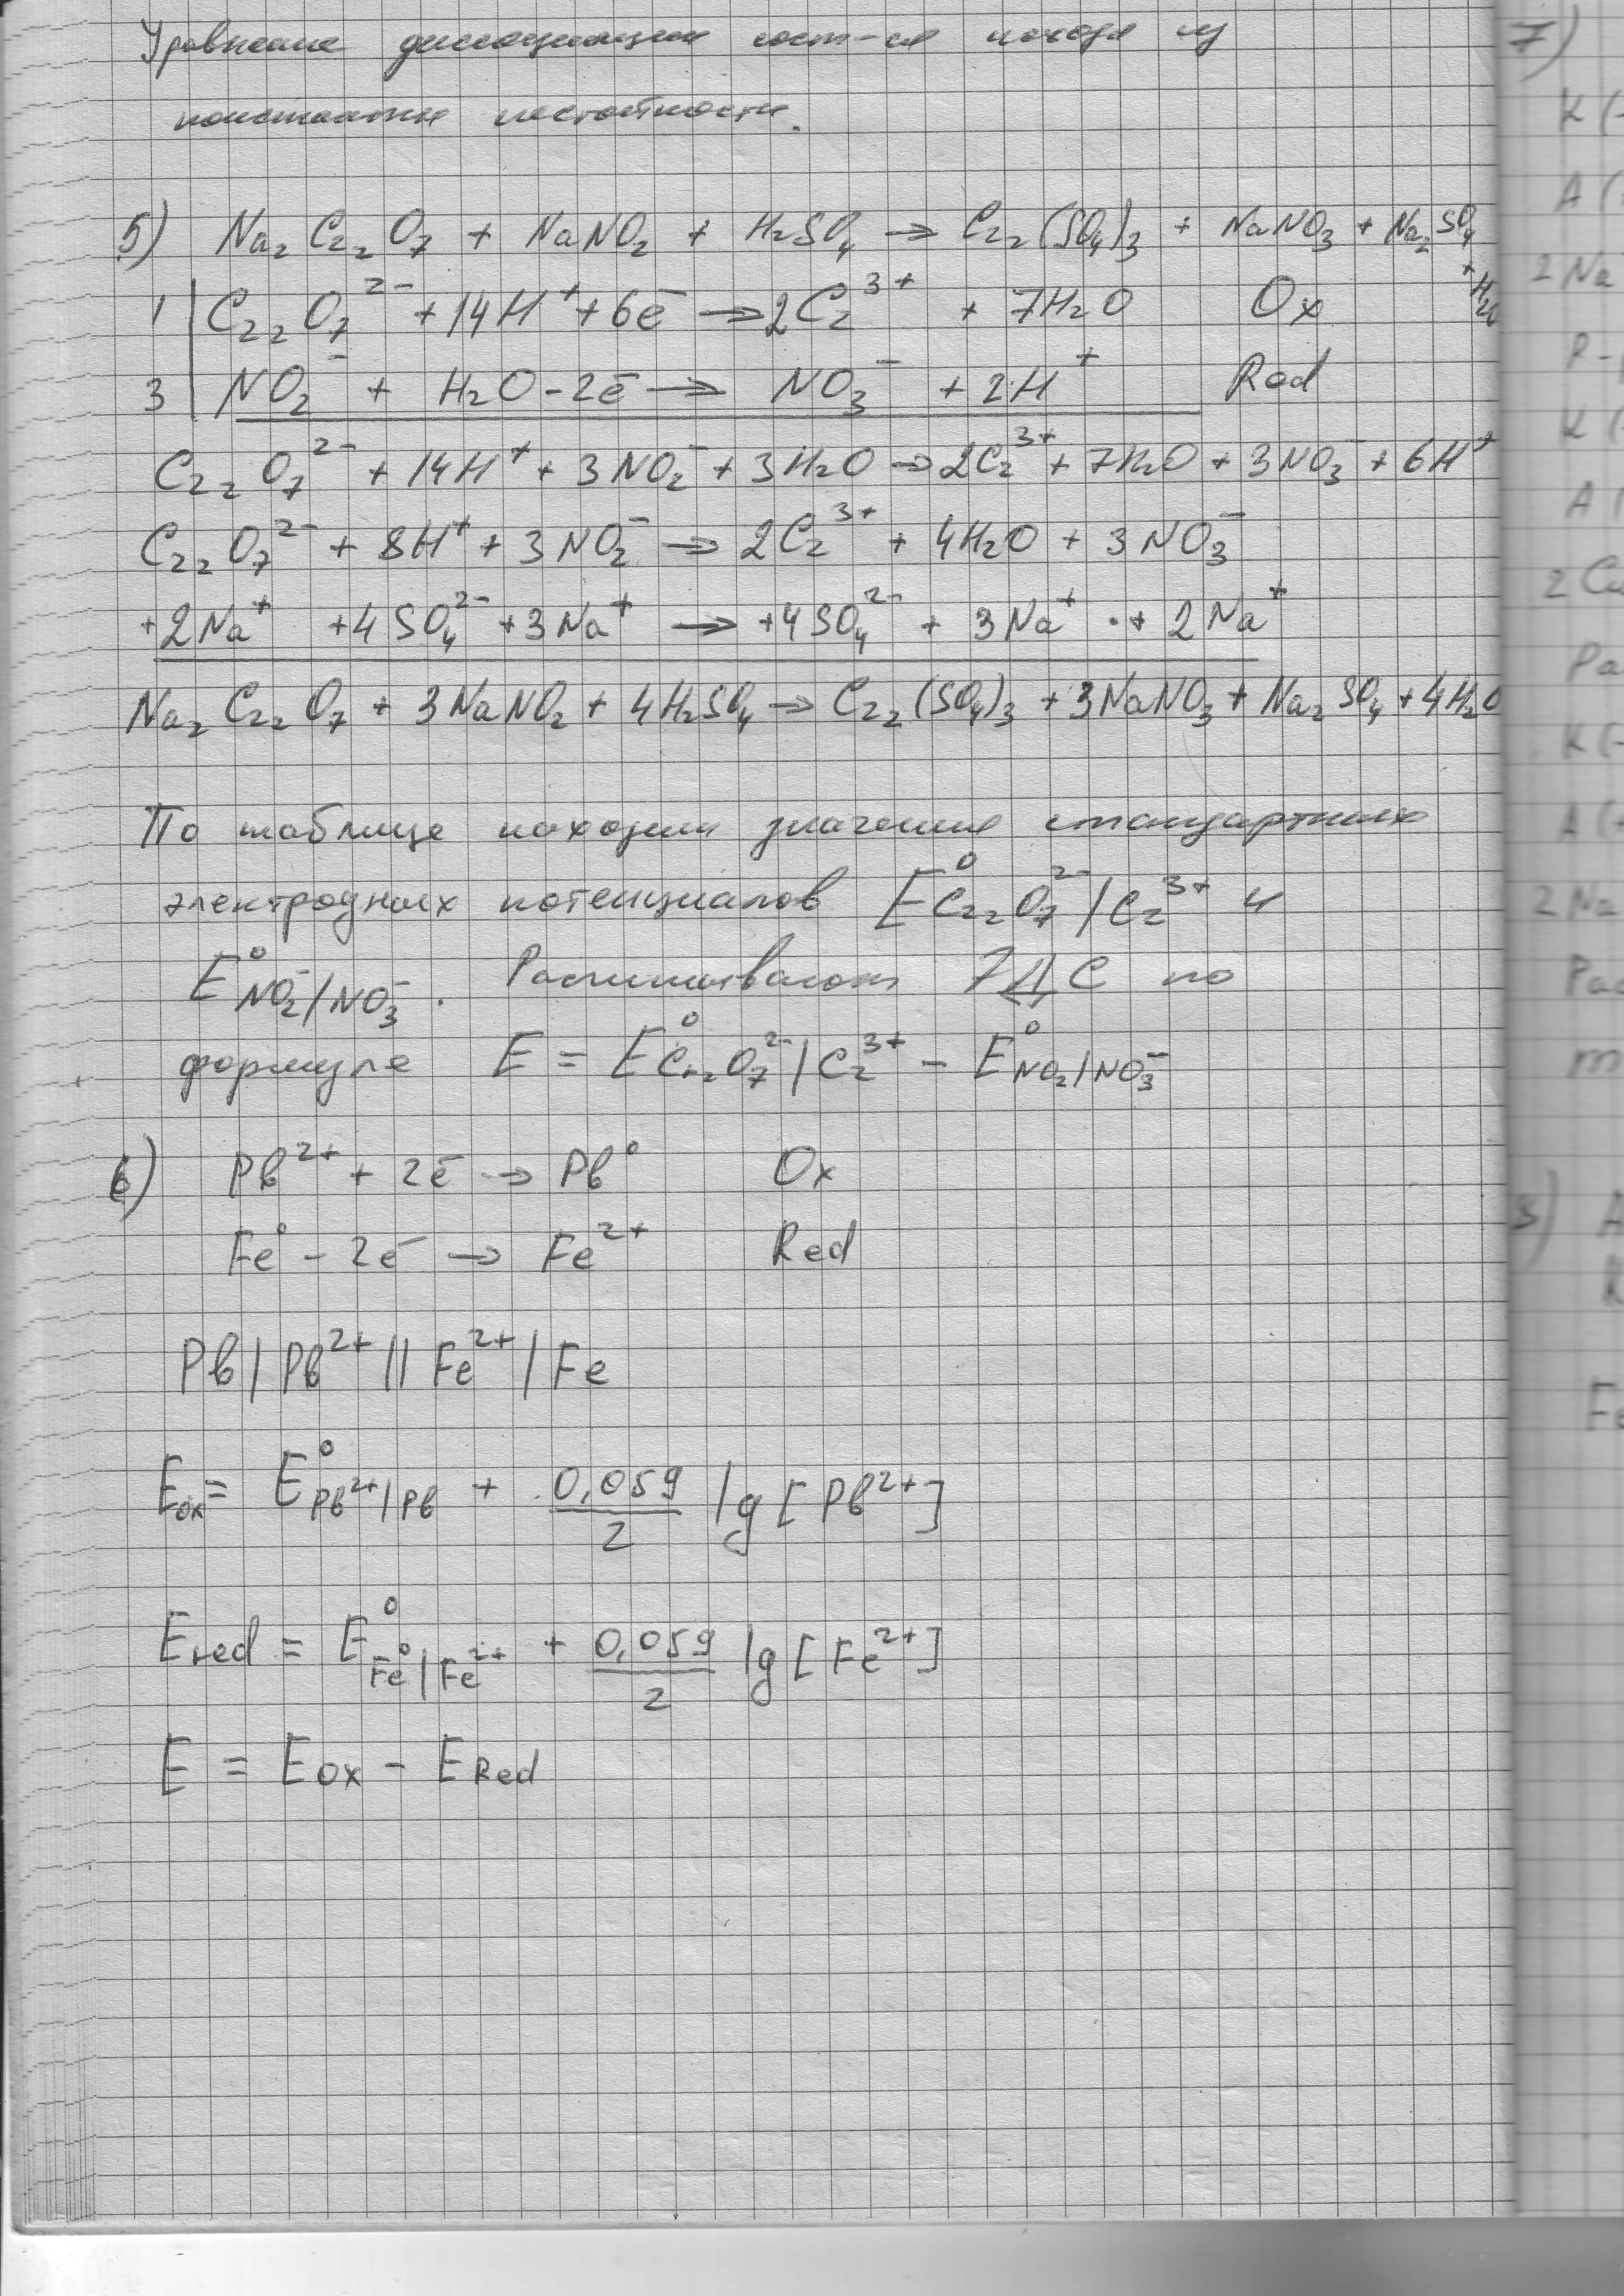 Уравнение диссоциации сост-ся исходя из
константы нестойкости.
5) Na₂Cr₂O₇ + NaNO₂ + H₂SO₄ → Cr₂(SO₄)₃ + NaNO₃ + Na₂SO₄ + H₂O
1 | Cr₂O₇²⁻ + 14H⁺ + 6ē → 2Cr³⁺ + 7H₂O Ox
3 | NO₂⁻ + H₂O - 2ē → NO₃⁻ + 2H⁺ Red
Cr₂O₇²⁻ + 14H⁺ + 3NO₂⁻ + 3H₂O → 2Cr³⁺ + 7H₂O + 3NO₃⁻ + 6H⁺
Cr₂O₇²⁻ + 8H⁺ + 3NO₂⁻ → 2Cr³⁺ + 4H₂O + 3NO₃⁻
+2Na⁺ +4SO₄²⁻ +3Na⁺ → +4SO₄²⁻ + 3Na⁺ + 2Na⁺
Na₂Cr₂O₇ + 3NaNO₂ + 4H₂SO₄ → Cr₂(SO₄)₃ + 3NaNO₃ + Na₂SO₄ + 4H₂O
По таблице находим значения стандартных
электродных потенциалов E⁰ Cr₂O₇²⁻/Cr³⁺ и
E⁰ NO₂⁻/NO₃⁻. Рассчитывают ЭДС по
формуле E = E⁰ Cr₂O₇²⁻/Cr³⁺ - E⁰ NO₂/NO₃⁻
6) Pb²⁺ + 2ē → Pb⁰ Ox
Fe⁰ - 2ē → Fe²⁺ Red
Pb/Pb²⁺//Fe²⁺/Fe
Eox = E⁰ Pb²⁺/Pb + 0,059/2 lg[Pb²⁺]
Ered = E⁰ Fe⁰/Fe²⁺ + 0,059/2 lg[Fe²⁺]
E = Eox - ERed
7)
K(-
A(
2Na
K(
A(
K(-
A(-
2Na
m
Fe